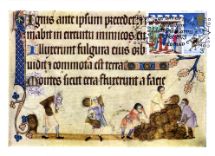 Ignis ante ipsum precedet
mabit in circuitu inimicos ei
Illuxerunt fulgura eius orbi
uidit et commota est terra
Montes sicut cera fluxerunt a facie